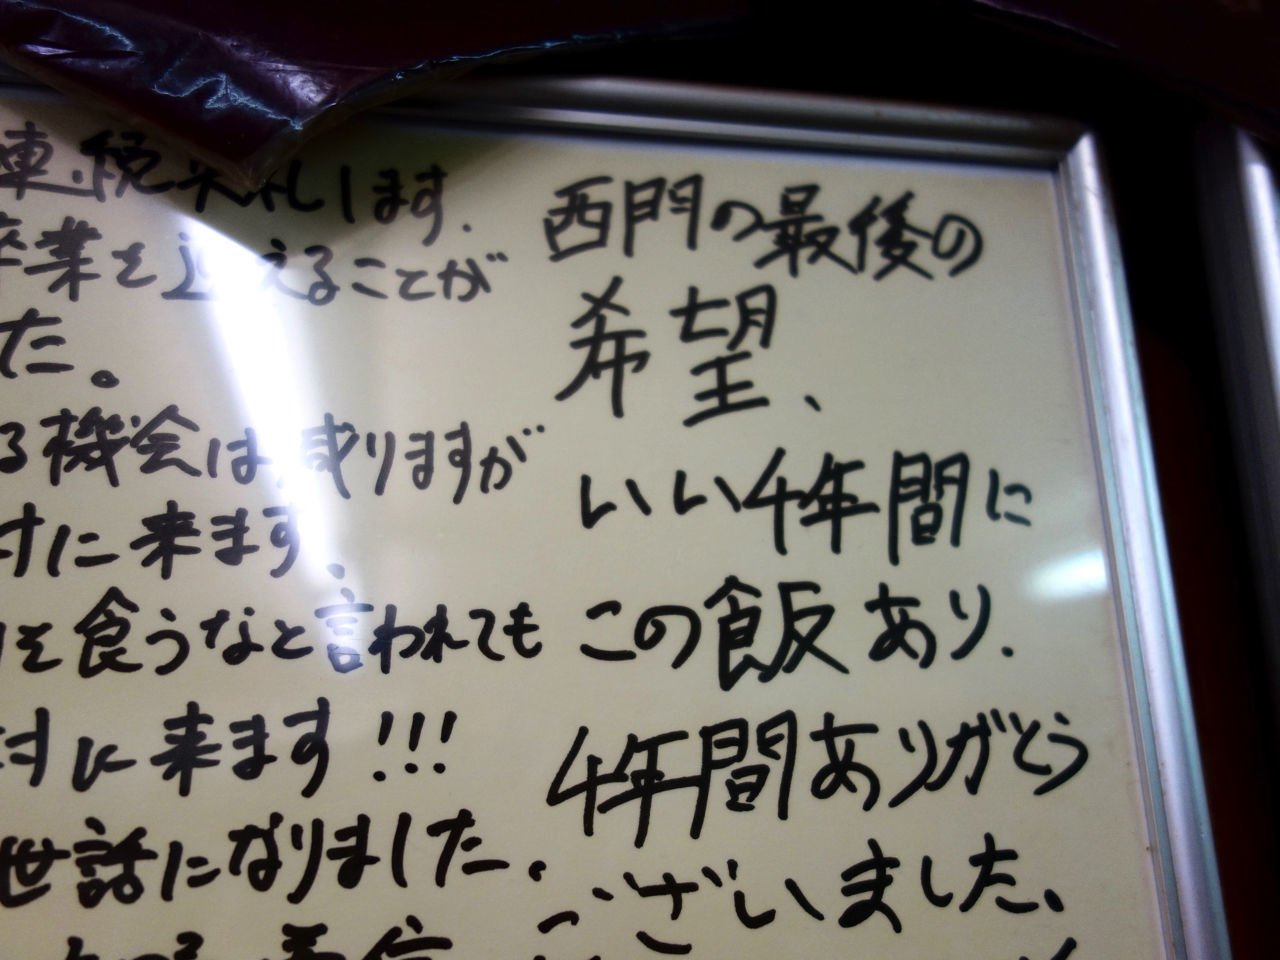 連続失礼します.
卒業を迎えることが
た。
る機会は減りますが
対に来ます.
を食うなと言われても
対に来ます!!!
世話になりました.
西門の最後の
希望、
いい4年間に
この飯あり.
4年間ありがとう
ございました、